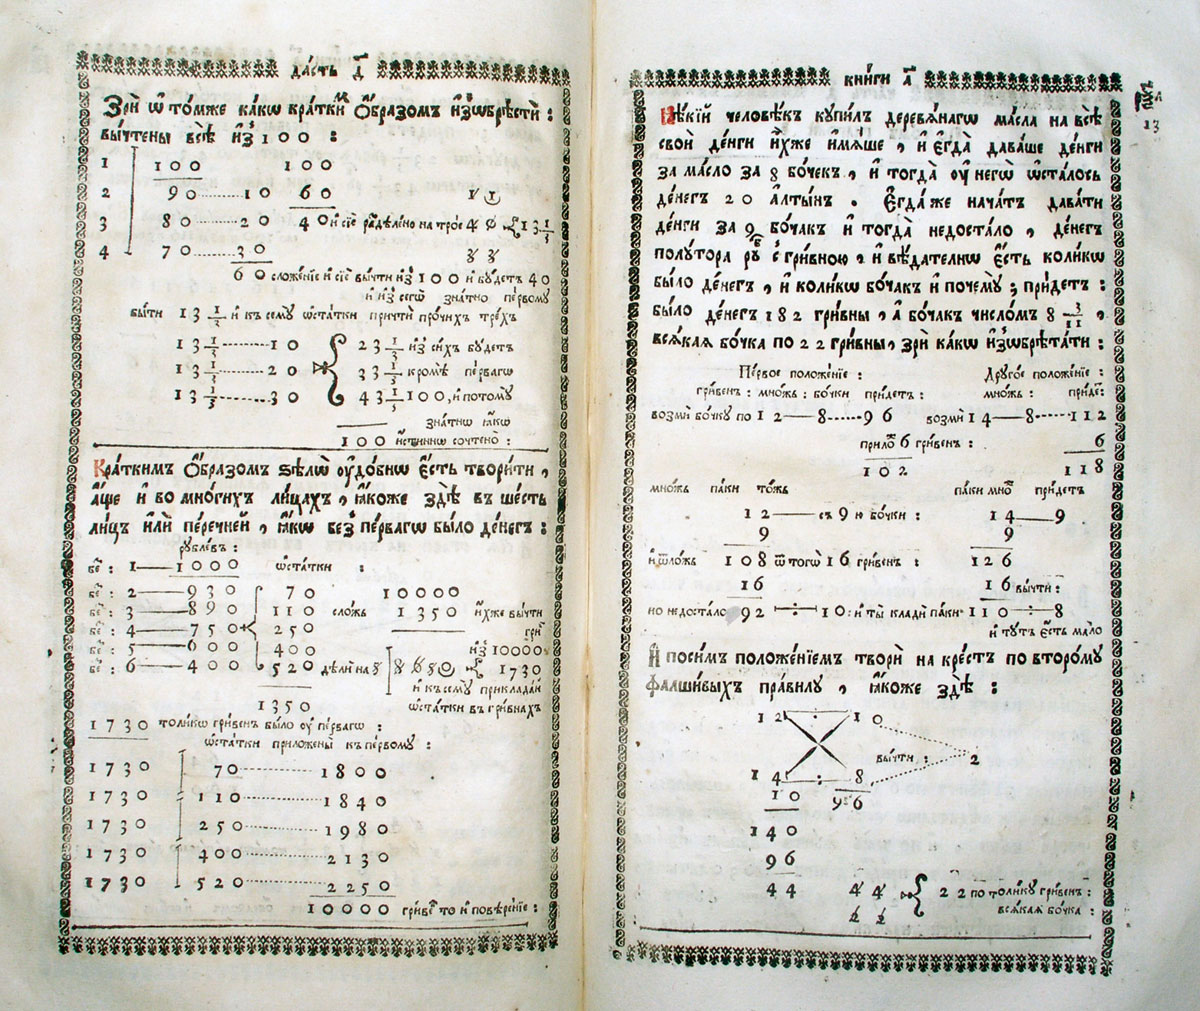 Часть д҃
Зрѝ ѿ томже какѡ краткимъ ѻ҆бразомъ и҆зѡбрѣсти :
вычтены всѣ и҆з̾ 100 :
1 100 100
2 90 10 60
3 80 20 40 и сїе раздѣлено на трое 13 1/3
4 70 30
60 сложенїе и сїе вычти и҆з̾ 100 и будетъ 40
и и҆з̾ сегѡ̀ знатно первому
быти 13 1/3 и къ сему ѡ҆статки причти прочихъ трехъ
13 1/3 10 23 1/3 и҆з̾ сихъ будетъ
13 1/3 20 33 1/3 кромѣ первагѡ
13 1/3 30 43 1/3 100, и потому
знатнѡ ꙗ҆кѡ
100 и҆стиннѡ сочтено :
Краткимъ ѻ҆бразомъ ѕѣлѡ̀ ᲂу҆добнѡ є҆сть творити ,
а҆ще и во многихъ лицахъ , ꙗ҆коже здѣ въ шесть
лицъ и҆лѝ перечней , ꙗ҆кѡ без̾ первагѡ было денегъ :
рублевъ :
без̾ : 1 1000 ѡ҆статки :
без̾ : 2 930 70 10000
без̾ : 3 890 110 сложь 1350 и҆хже вычти
без̾ : 4 750 250 гри
без̾ : 5 600 400 и҆з̾ 10000
без̾ : 6 400 520 дѣли на 5 8650 1730
1350 и къ сему прикладай
ѡ҆статки въ гривнахъ
1730 толикѡ гривенъ было ᲂу҆ первагѡ :
ѡ҆статки приложены къ первому :
1730 70 1800
1730 110 1840
1730 250 1980
1730 400 2130
1730 520 2250
10000 гриве то и повѣренїе :
книги а҃
13
Нѣкїй человѣкъ купилъ деревянагѡ масла на всѣ
свои денги и҆хже имѧше , и є҆гда даваше денги
за масло за 8 бочекъ , и тогда ᲂу҆ негѡ ѡ҆сталось
денегъ 20 алтынъ . Є҆гдаже начатъ давати
денги за 9 бочакъ и тогда недостало , денегъ
полутора руб с гривною , и вѣдателнѡ є҆сть коликѡ
было денегъ , и коликѡ бочакъ и почему ; придетъ :
было денегъ 182 гривны , а҆ бочакъ числомъ 8 3/11 ,
всѧкаѧ бочка по 22 гривны , зрѝ какѡ и҆зѡбрѣтати :
Первое положенїе : Другое положенїе :
гривенъ : множь : бочки придетъ : множь : придетъ:
возми бочку по 12 8 96 возми 14 8 112
прилож 6 гривенъ : 6
102 118
множь паки тожъ паки множ придетъ
12 съ 9 ю бочки : 14 9
9 9
и ѿложь 108 ѿ тогѡ̀ 16 гривенъ : 126
16 16 вычти :
но недостало 92 10 : и ты клади паки 110 8
и тутъ є҆сть мало
И посимъ положенїемъ творѝ на крестъ по второму
фалшивыхъ правилу , ꙗ҆коже здѣ :
12 10
вычти : 2
14 8
10 96
140
96
44 44 22 по толику гривенъ :
2 2 всѧкаѧ бочка :